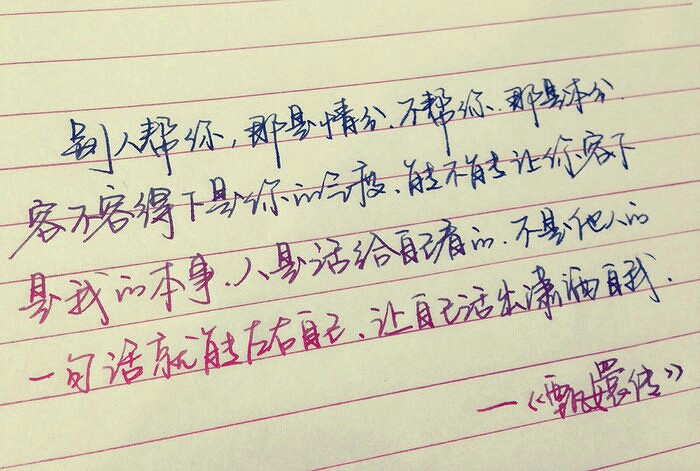 别人帮你,那是情分.不帮你.那是本分.
容不容得下是你的气度、能不能让你容下
是我的本事.人是活给自己看的.不是他人的
一句话就能左右自己、让自己活出潇洒自我.
—《甄嬛传》